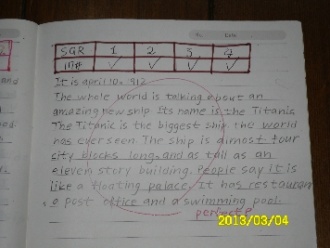 SQR 1 2 3 4
inst ✓ ✓ ✓ ✓
It is april 10, 912
The whole world is talking about an
amazing new ship. Its name is the Titanis.
The Titanic is the biggest ship the world
has ever seen. The ship is almost four
city blocks long, and as tall as an
eleven story building. People say it is
like a floating palace. It has restauran
a post office and a swimming pool.
perfect!
2013/03/04